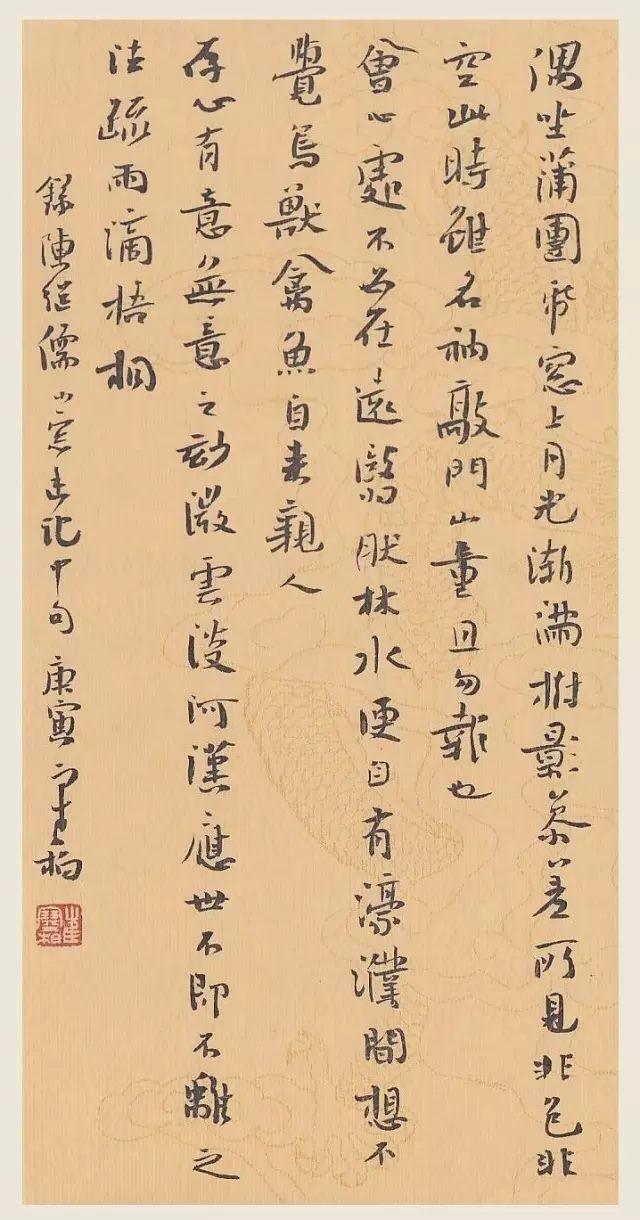 偶坐蒲團帋窓上月光漸滿樹影參差所見非色非
空此時雖名衲敲門山童且勿報也
會心處不必在遠翳然林水便自有濠濮間想不
覺鳥獸禽魚自來親人
存心有意無意之妙微雲淡河漢應世不即不離之
法疏雨滴梧桐
錄陳繼儒小窓幽記中句 庚寅 寒柏
崔寒柏